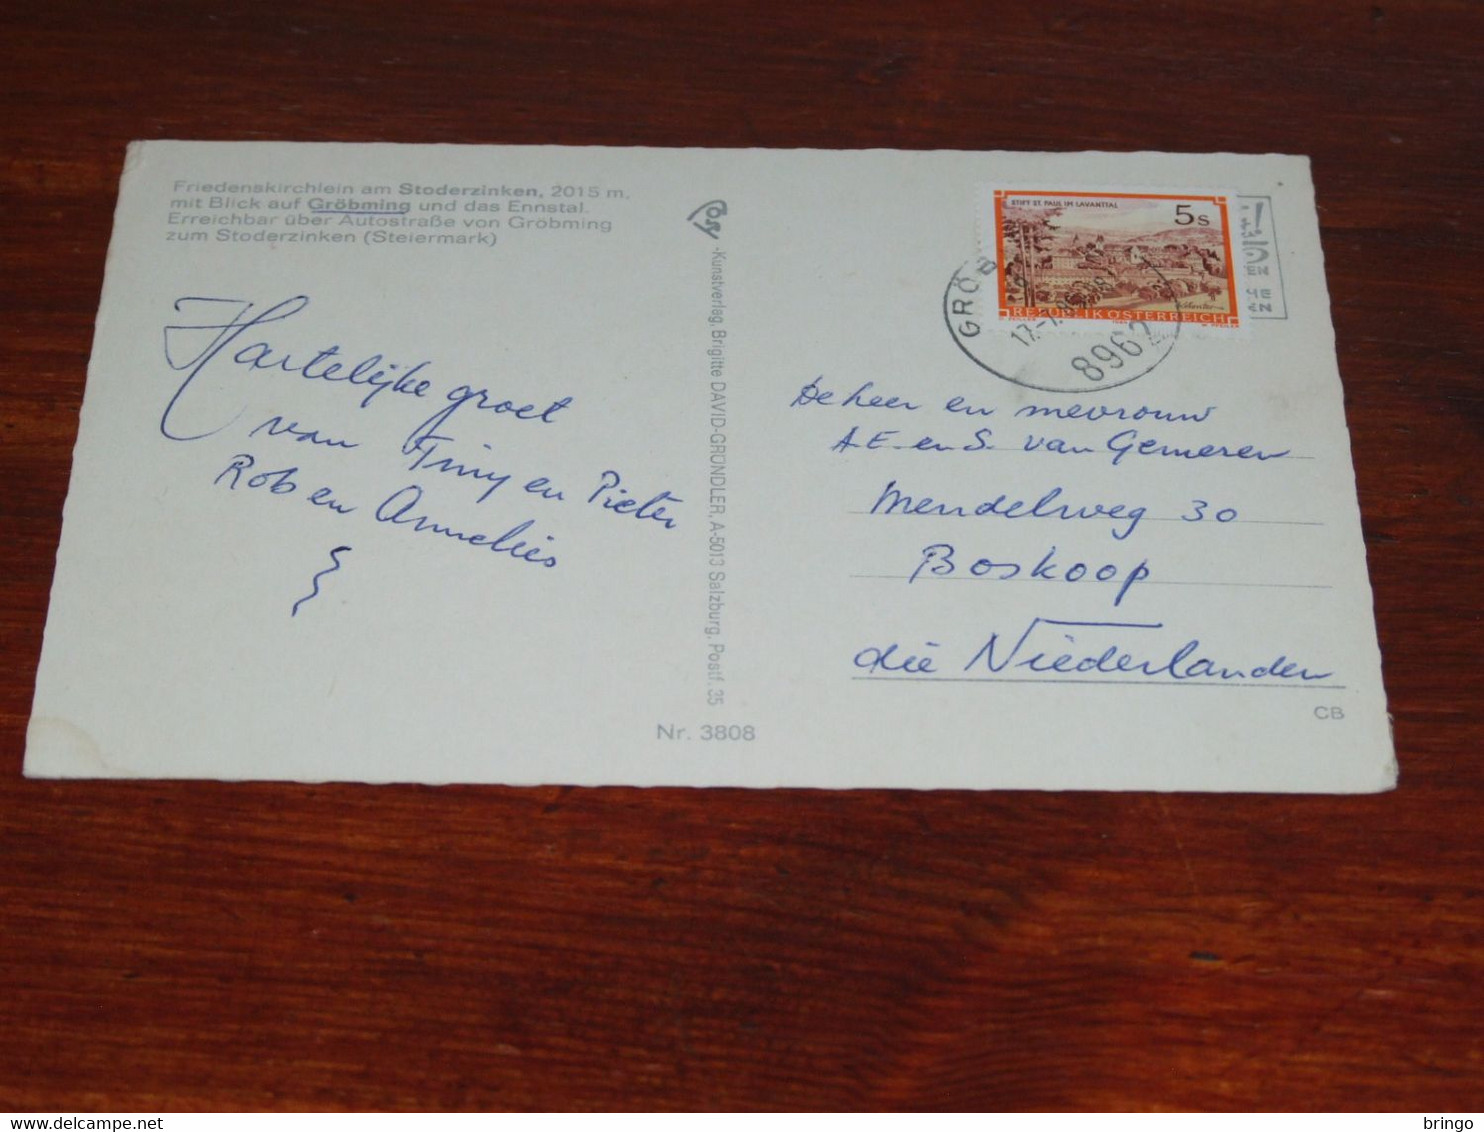 Friedenskirchlein am Stoderzinken, 2015 m,
mit Blick auf Gröbming und das Ennstal.
Erreichbar über Autostraße von Gröbming
zum Stoderzinken (Steiermark)
Hartelijke groet
van Tiny en Pieter
Rob en Annelies
Cosy
-Kunstverlag, Brigitte DAVID-GRÜNDLER, A-5013 Salzburg, Postf. 35
Nr. 3808
STIFT ST. PAUL IM LAVANTTAL
5s
REPUBLIK ÖSTERREICH
GRÖB
17.-7.
8962
De heer en mevrouw
A.E. en S. van Gemeren
Mendelweg 30
Boskoop
die Niederlanden
CB
www.delcampe.net
bringo